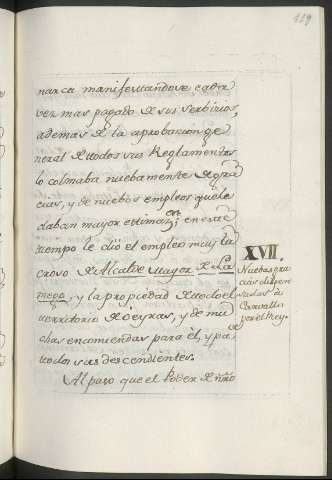 129
narca manifestandose cada
vez mas pagado de sus servicios,
ademas de la aprobacion ge
neral de todos sus Reglamentos
lo colmaba nuebamente de gra
cias, y de nuebos empleos que le
daban mayor estimaon; en este
tiempo le dió el empleo muy lu
croso de Alcalde mayor de La
mego, y la propiedad de todo el
territorio de Oeyras, y de mu
chas encomiendas para èl, y pa
todos sus descendientes.
Al paso que el Poder de nro
XVII.
Nuebas gra
cias dispen
sadas à
Caravallo
por el Rey.